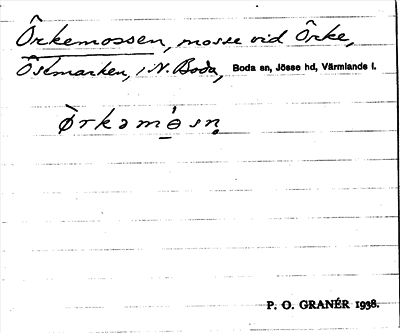 Örkemossen, mosse vid Örke,
Östmarken, i N. Boda, Boda sn, Jösse hd, Värmlands l.
ø̀rkəmɵ̀sn̥
P. O. GRANÉR 1938.